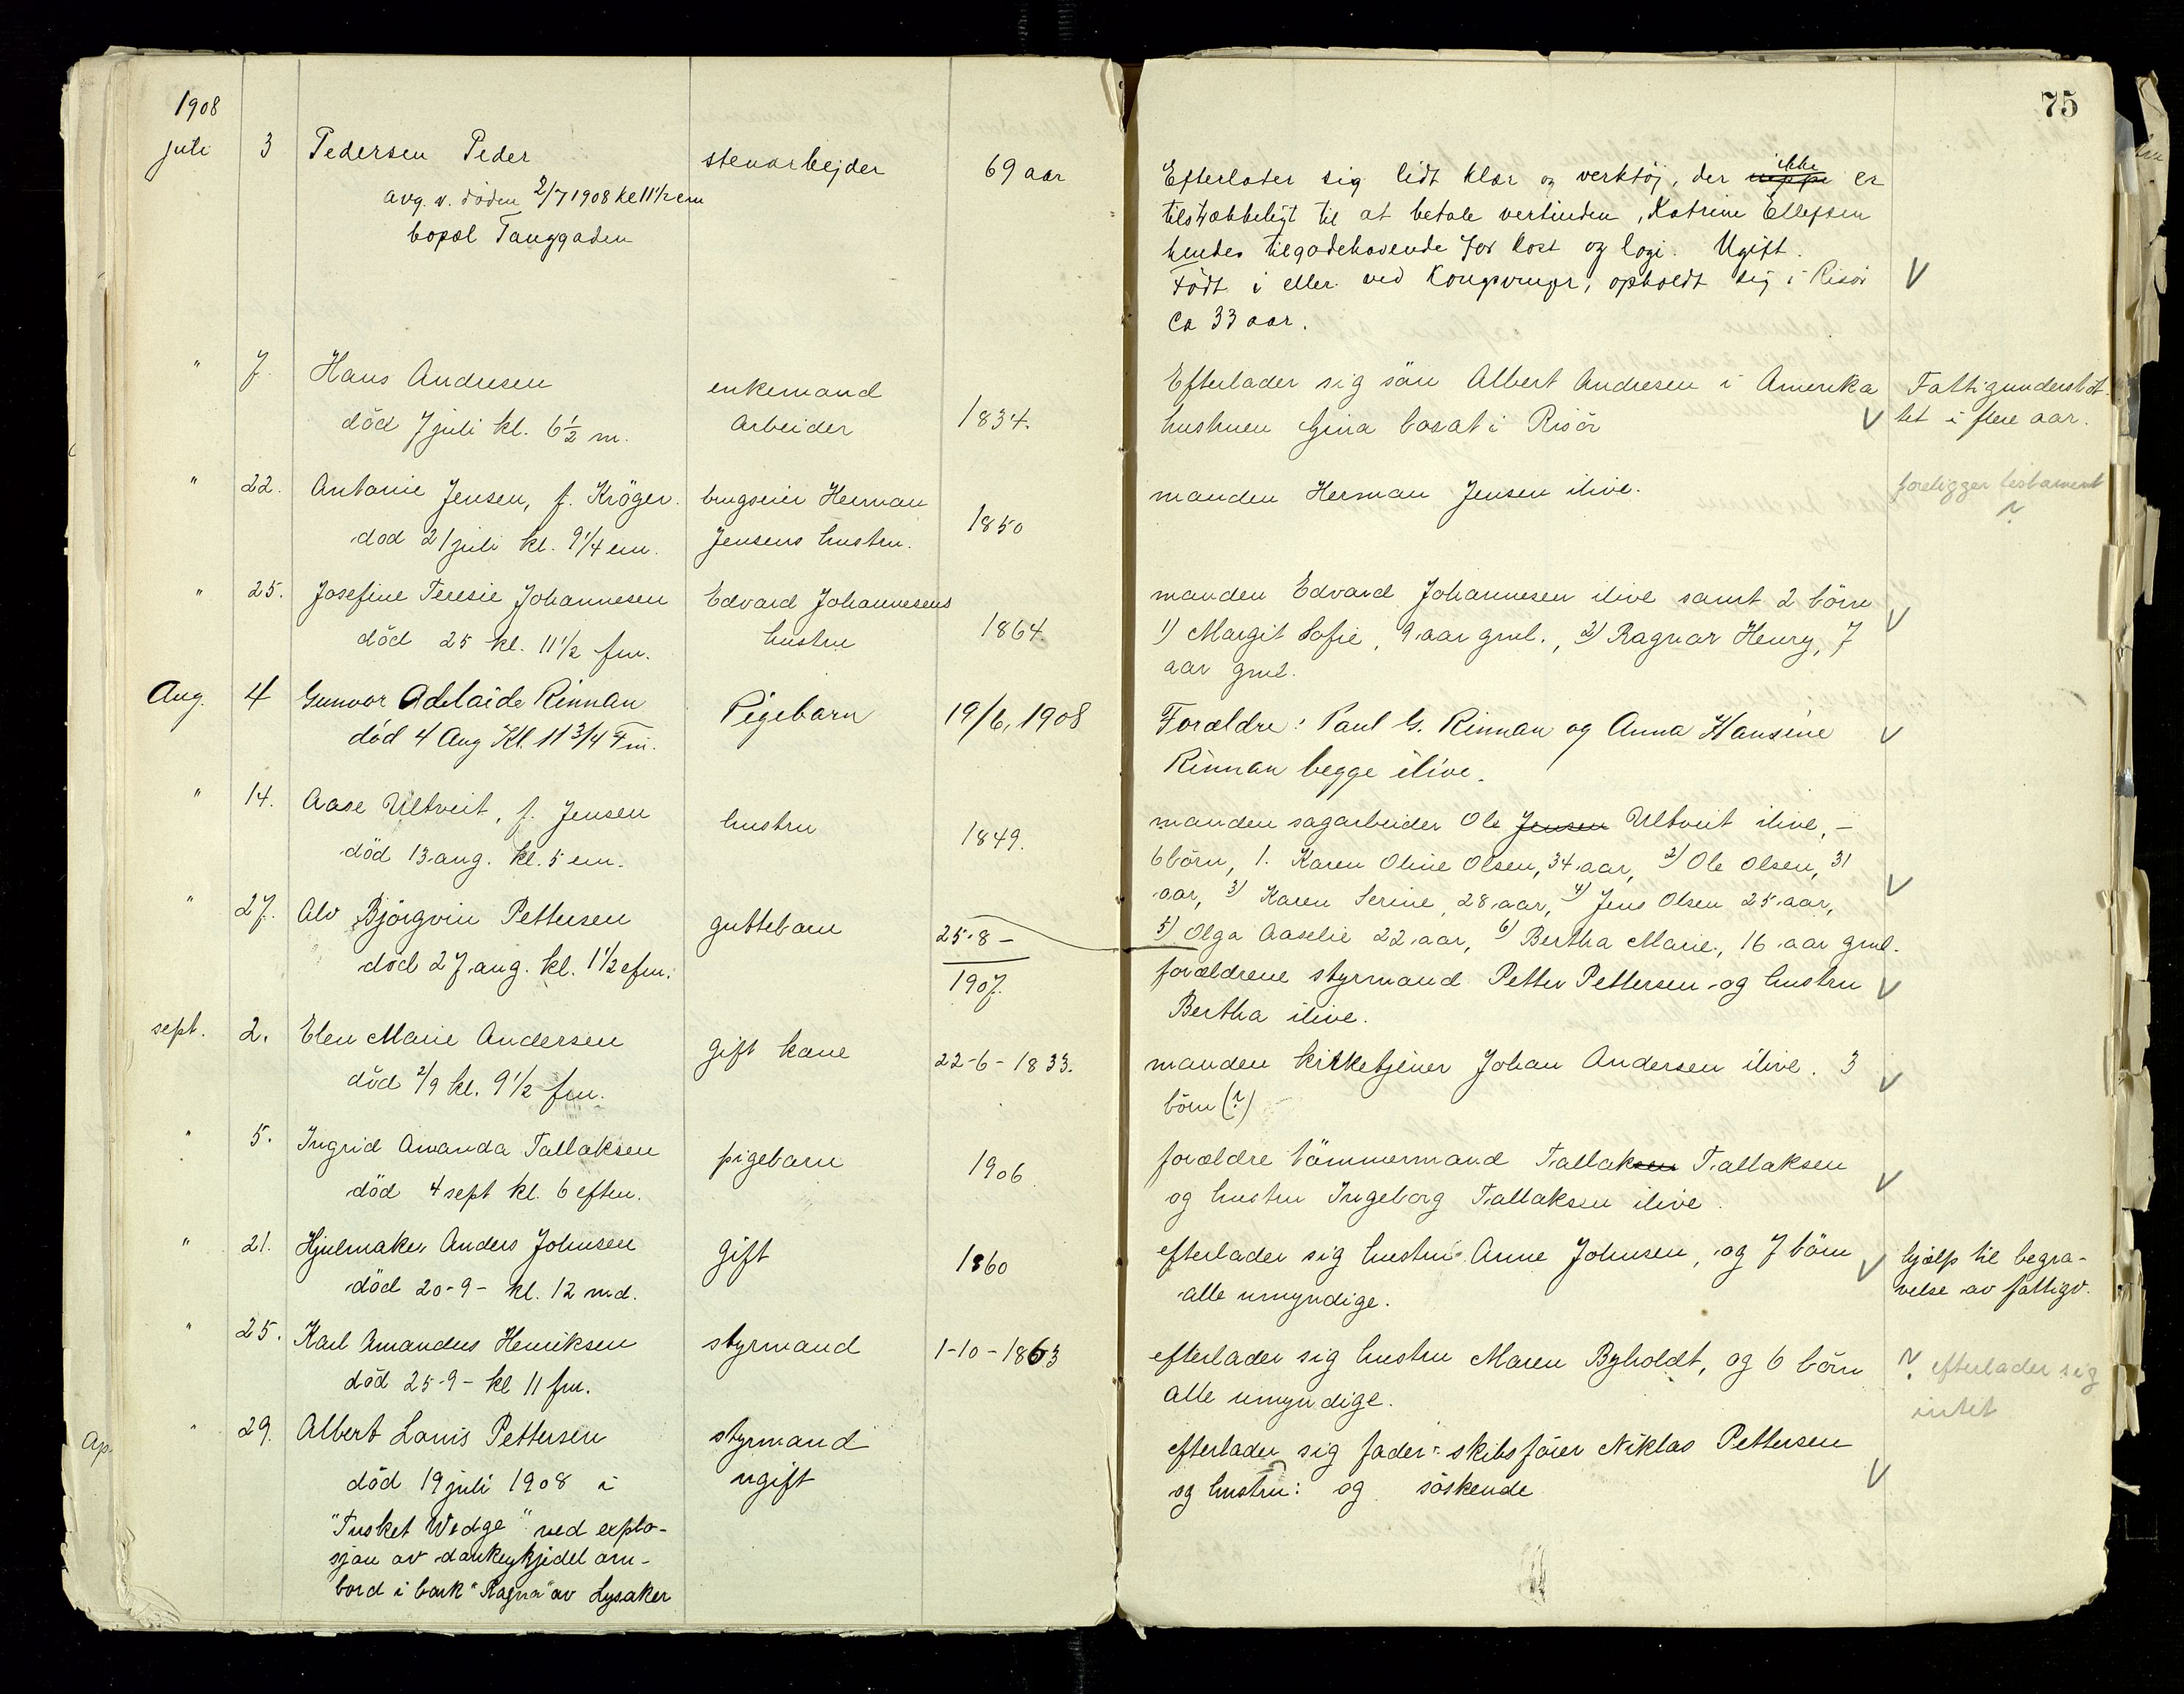 75
1908
juli 3 Pedersen Peder stenarbejder 69 aar
avg. v. döden 2/7 1908 kl 11 1/2 em
bopæl Tanggaden
Efterlater sig lidt klær og verktöj, der ikke er
tilstrækkeligt til at betale vertinden, Katrine Ellefsen
hendes tilgodehavende for kost og logi. Ugift.
Födt i eller ved Kongsvinger, opholdt sig i Risör
Ca 33 aar.
" 7. Hans Andresen enkemand
död 7 juli kl. 6 1/2 m. Arbeider 1834.
Efterlader sig sön Albert Andresen i Amerika
hustruen Gina bosat i Risör
Fattigunderstöt-
tet i flere aar.
" 22. Antonie Jensen, f. Kröger. brugseier Herman
död 21 juli kl. 9 1/4 em. Jensens hustru. 1850
manden Herman Jensen ilive.
foreligger testament
?
" 25. Josefine Teresie Johannesen Edvard Johannesens
död 25 kl. 11 1/2 fm. hustru 1864
manden Edvard Johannesen ilive samt 2 börn
1) Margit Sofie, 9 aar gml., 2) Ragnar Henry, 7
aar gml.
Aug. 4 Gunvor Adelaide Rinnan Pigebarn 19/6, 1908
död 4 Aug Kl. 11 3/4 Fm.
Forældre: Paul G. Rinnan og Anna Hansine
Rinnan begge ilive.
" 14. Aase Ultveit, f. Jensen hustru 1849.
död 13 aug. kl. 5 em.
manden sagarbeider Ole Jensen Ultveit ilive, –
6 börn, 1. Karen Oline Olsen, 34 aar, 2) Ole Olsen, 31
aar, 3) Karen Serine, 28 aar, 4) Jens Olsen 25 aar,
5) Olga Aaselie 22 aar, 6) Bertha Marie, 16 aar gml.
" 27. Alv Björgvin Pettersen guttebarn 25-8-
död 27 aug. kl. 1 1/2 efm. 1907.
forældrene styrmand Petter Pettersen og hustru
Bertha ilive.
sept. 2. Elen Marie Andersen gift kone 22-6-1833.
död 2/9 kl. 9 1/2 fm.
manden kirketjener Johan Andersen ilive. 3
börn (?)
" 5. Ingrid Amanda Tallaksen pigebarn 1906.
död 4 sept kl. 6 eftm.
forældre tömmermand Tallaksen Tallaksen
og hustru Ingeborg Tallaksen ilive.
" 21. Hjulmaker Anders Johnsen gift 1860
död 20-9- kl. 12 md.
efterlader sig hustru Anne Johnsen, og 7 börn
alle umyndige.
hjælp til begra-
velse av fattigv.
" 25. Karl Amandus Henriksen styrmand 1-10-1863
död 25-9- kl 11 fm.
efterlader sig hustru Maren Byholdt, og 6 börn
alle umyndige.
? efterlader sig
intet
" 29. Albert Louis Pettersen styrmand
död 19 juli 1908 i ugift
"Tusket Wedge" ved explo-
sjon av donkeykjedel om-
bord i bark "Ragna" av Lysaker
efterlader sig fader: skibsförer Niklas Pettersen
og hustru: og söskende
Ap.